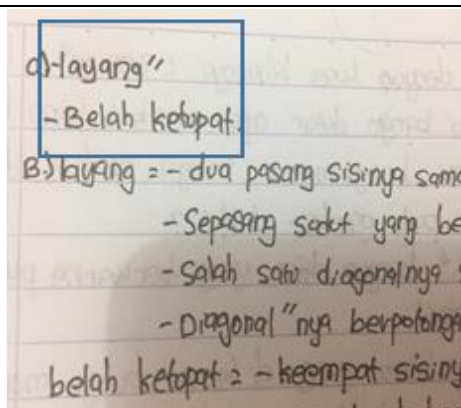 a) - layang"
- Belah ketupat.
B.) layang = - dua pasang sisinya sama
- Sepasang sudut yang be
- Salah satu diagonalnya s
- Diagonal"nya berpotonga
belah ketopat = - keempat sisiny